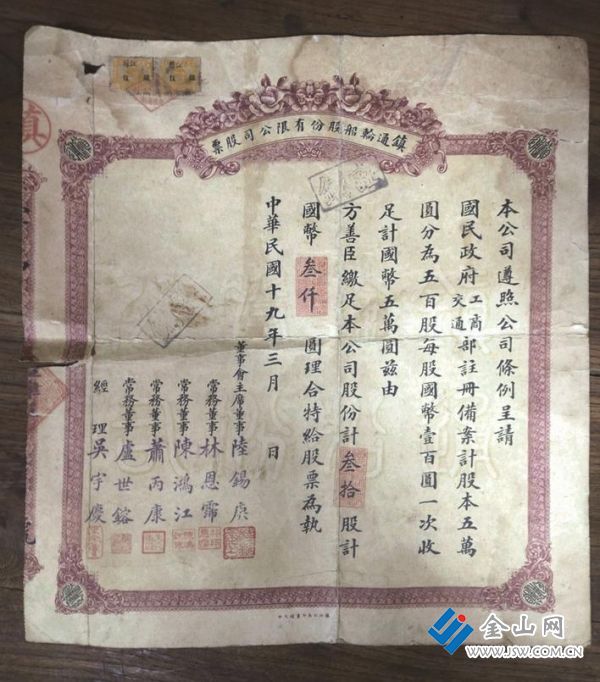 鎮通輪船股份有限公司股票
本公司遵照公司條例呈請
國民政府工商交通部註冊備案計股本五萬
圓分為五百股每股國幣壹百圓一次收
足計國幣五萬圓茲由
方善臣繳足本公司股份計叁拾股計
國幣叁仟圓理合特給股票為執
中華民國十九年三月 日
董事會主席董事陸錫庚
常務董事林恩霈
常務董事陳鴻江
常務董事蕭丙康
常務董事盧世鎔
經理吳宇慶
鎮
號
金山网
WWW.JSW.COM.CN